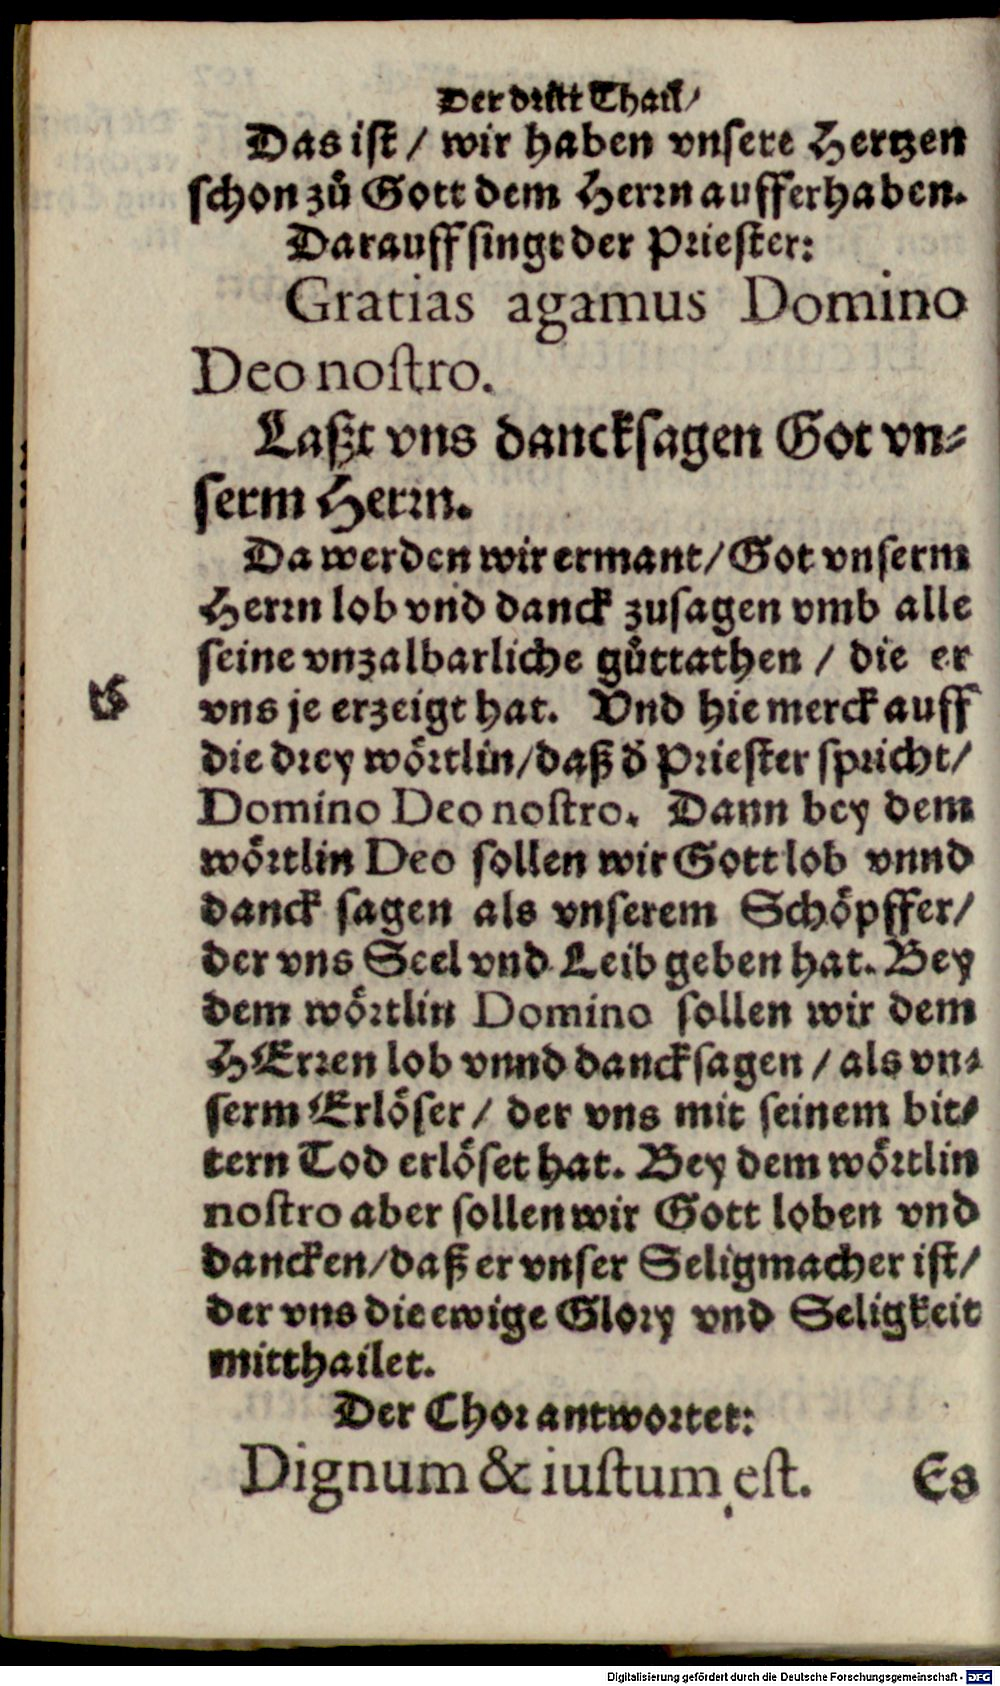 Der dritt Thail/
Das ist / wir haben vnsere Hertzen
schon zů Gott dem Herrn aufferhaben.
Darauff singt der Priester:
Gratias agamus Domino
Deo nostro.
Laßt vns dancksagen Got vn-
serm Herrn.
Da werden wir ermant/ Got vnserm
Herrn lob vnd danck zusagen vmb alle
seine vnzalbarliche gůttathen / die er
vns je erzeigt hat. Vnd hie merck auff
die drey wörtlin/daß d̄ Priester spricht/
Domino Deo nostro. Dann bey dem
wörtlin Deo sollen wir Gott lob vnnd
danck sagen als vnserem Schöpffer/
der vns Seel vnd Leib geben hat. Bey
dem wörtlin Domino sollen wir dem
HErren lob vnnd dancksagen / als vn-
serm Erlöser / der vns mit seinem bit-
tern Tod erlöset hat. Bey dem wörtlin
nostro aber sollen wir Gott loben vnd
dancken/daß er vnser Seligmacher ist/
der vns die ewige Glory vnd Seligkeit
mitthailet.
Der Chor antwortet:
Dignum & iustum est.
Es
Digitalisierung gefördert durch die Deutsche Forschungsgemeinschaft - DFG